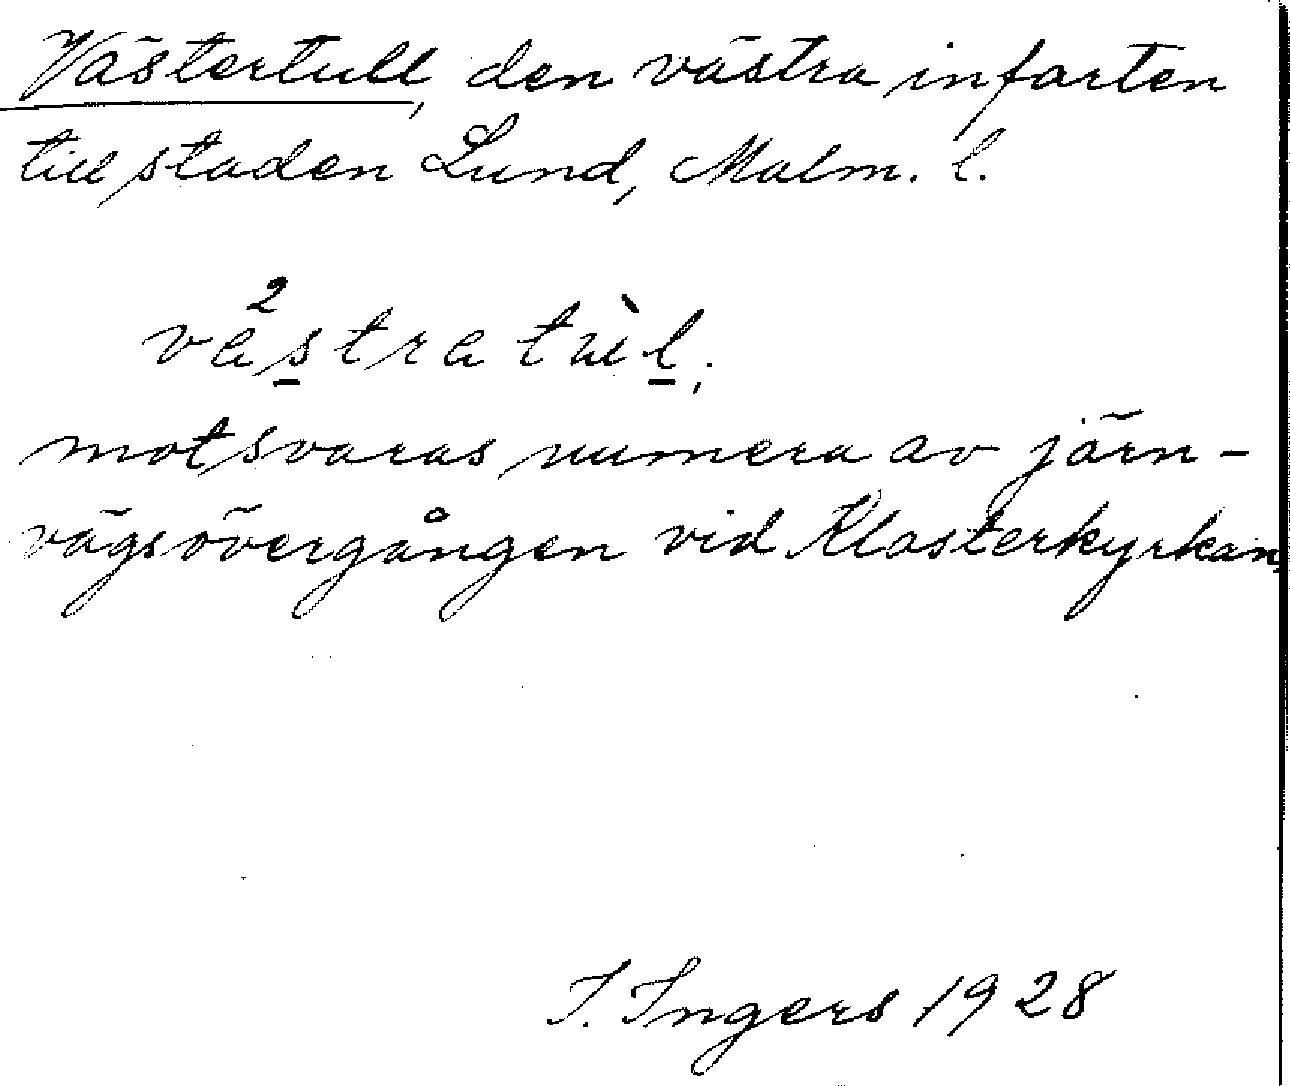 Västertull, den västra infarten
till staden Lund, Malm. l.
västratul;
motsvaras numera av järn-
vägsövergången vid Klosterkyrkan.
I. Ingers 1928